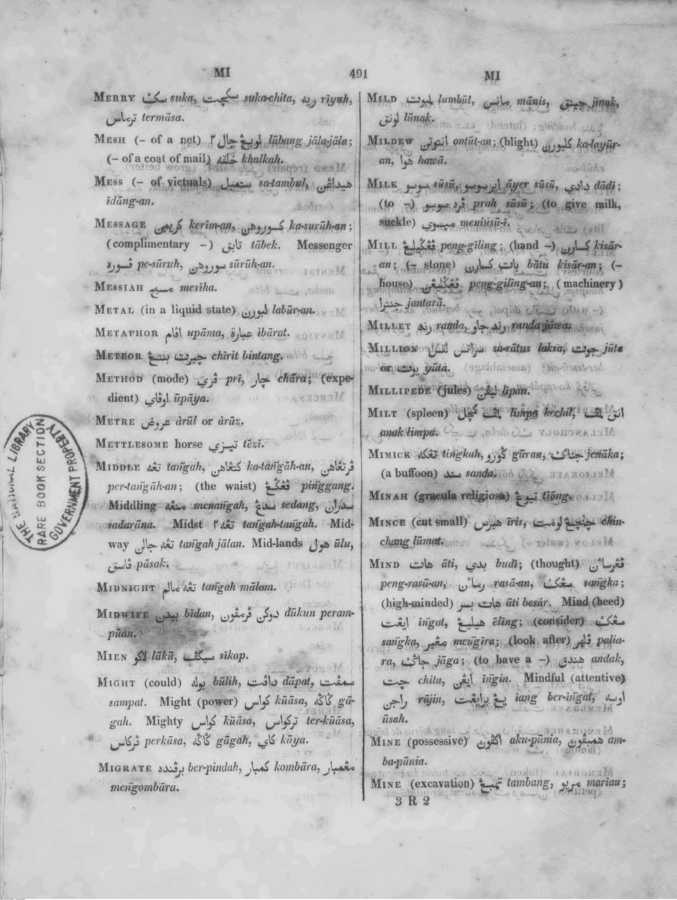 MI
491
MI
MERRY سک suka, سکچیت suka-chita, ريه riyuh,
ترماس termāsa.
MESH (– of a net) لوبڠ جال٢ lūbang jāla-jāla;
(– of a coat of mail) خلقه khalkah.
MESS (– of victuals) sa-tambul, هيداڠن
īdāng-an.
MESSAGE kerīm-an, کسوروهن ka-surūh-an;
(complimentary –) تابق tābek. Messenger
pe-sūruh, سوروهن sūrūh-an.
MESSIAH مسيح mesiha.
METAL (in a liquid state) لبورن labūr-an.
METAPHOR upāma, عبارة ibārat.
METEOR چيريت بنتڠ chīrit bintang.
METHOD (mode) ڤري prī, چار chāra; (expe-
dient) اوڤاي ūpāya.
METRE عروض ārūl or ārūz.
METTLESOME horse تيزي tēzi.
MIDDLE تڠه tangah, کتڠاهن ka-tangāh-an, ڤرتڠاهن
per-tangāh-an; (the waist) ڤڠڬڠ pinggang.
Middling منڠه menangah, سدڠ sedang, سدران
sadarāna. Midst تڠه٢ tangah-tangah. Mid-
way تڠه جالن tangah jālan. Mid-lands هول ūlu,
ڤاسق pāsak.
MIDNIGHT تڠه مالم tangah mālam.
MIDWIFE بيدن bīdan, دوکن ڤرمڤون dūkun peram-
pūan.
MIEN لاکو lākū, سيکڤ sīkap.
MIGHT (could) بوله būlih, داڤت dāpat, سمڤت
sampat. Might (power) کواس kūāsa, ڬاڬه gā-
gah. Mighty کواس kūāsa, ترکواس ter-kūāsa,
ڤرکاس perkāsa, ڬاڬه gāgah, کاي kāya.
MIGRATE برڤنده ber-pindah, کمبار kombāra, مڠمبار
mengombāra.
MILD لمبوت lumbūt, مانس mānis, jīnak,
لونق lūnak.
MILDEW ontūt-an; (blight) کليورن ka-layūr-
an, هوا hawā.
MILK سوسو sūsū, اير سوسو āyer sūsū, دادي dādi;
(to –) ڤره سوسو prah sūsū; (to give milk,
suckle) meniusū-i.
MILL ڤڠڬيليڠ peng-gīling; (hand –) کسارن kīsār-
an; (– stone) باتو کسارن bātu kisār-an; (–
house) ڤڠڬيليڠن peng-gīling-an; (machinery)
جنترا jantarā.
MILLET رند randa, رند جاو randa jāwa.
MILLION سراتس لقس sa-rātus laksa, جوت jūta
or يوت yūta.
MILLIPEDE (jules) ليڤن līpan.
MILT (spleen) لمڤ کچل limpa kechil, انق لمڤ
anak limpa.
MIMICK تڠکه tingkah, ڬورو gūran, جناک jenāka;
(a buffoon) سند sanda.
MINAH (gracula religiosa) تيوڠ tiōng.
MINCE (cut small) هيرس īris, چنچڠ لومت chin-
chang lūmat.
MIND هات āti, بدي budi; (thought) ڤڠرسان
peng-rasā-an, رسان rasā-an, سڠک sangka;
(high-minded) هات بسر āti besār. Mind (heed)
ايڠت ingat, هيليڠ ēling; (consider) سڠک
sangka, مڠير mengīra; (look after) ڤلهر palia-
ra, جاڬ jāga; (to have a –) هندق andak,
چيت chita, ايڠن ingin. Mindful (attentive)
راجن rājin, يڠ برايڠت iang ber-ingat, اوسه
ūsah.
MINE (possessive) اکڤون aku-pūnia, همبڤون am-
ba-pūnia.
MINE (excavation) تمبڠ tambang, مريو mariau;
3 R 2
THE NATIONAL LIBRARY
RARE BOOK SECTION
GOVERNMENT PROPERTY